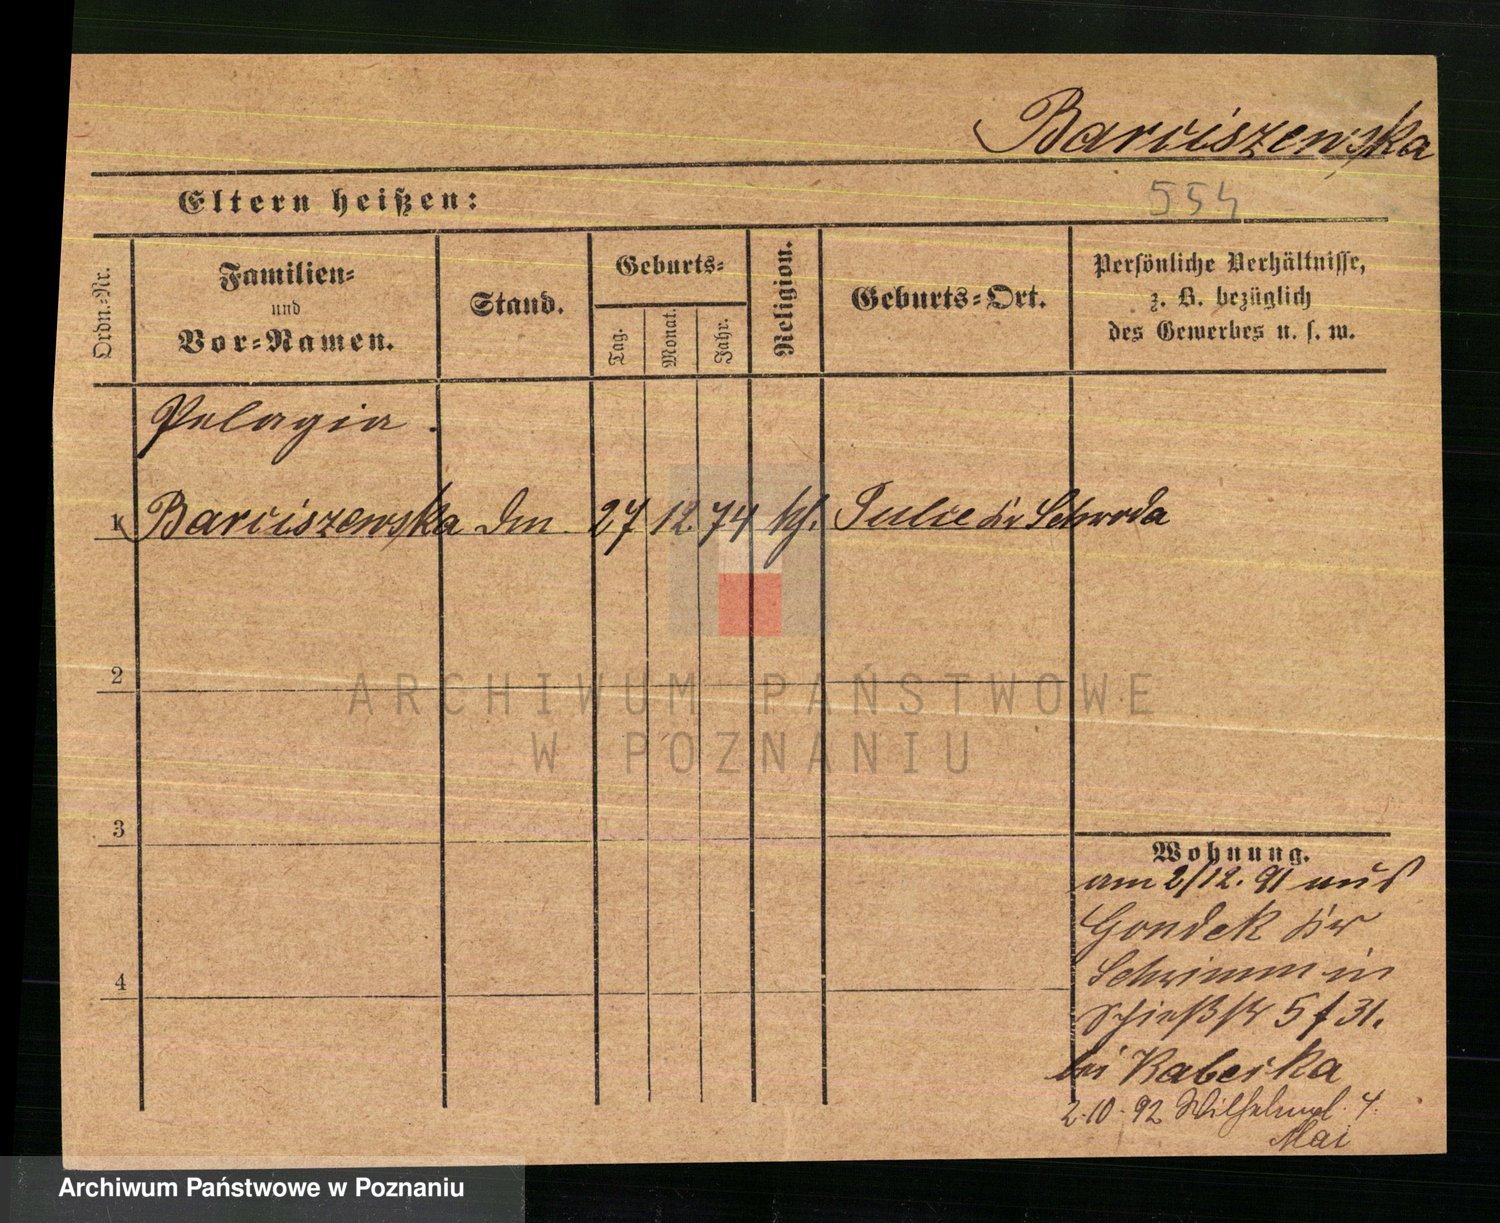 Barciszewska
Eltern heißen:
554
Ordn.-Nr.
Familien-
und
Vor-Namen.
Stand.
Geburts-
Tag.
Monat.
Jahr.
Religion.
Geburts-Ort.
Persönliche Verhältnisse,
z. B. bezüglich
des Gewerbes u. s. w.
Pelagia.
1 Barciszewska Dm 27 12. 74 kth. Tulce Kr Schroda
2
3
4
Wohnung.
am 2/12. 91 aus
Gondek Kr
Schrimm in
Schießstr 5 f 31.
bei Kabeika
2.10.92 Wilhelmpl. 4.
Mai
ARCHIWUM PAŃSTWOWE
W POZNANIU
Archiwum Państwowe w Poznaniu